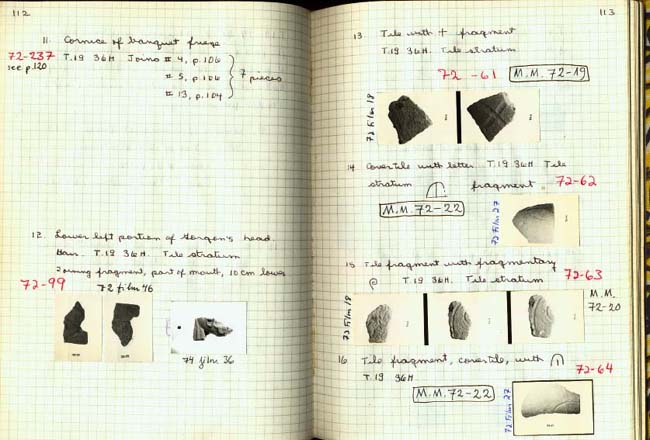 112
11 Cornice of banquet frieze
72-237 T.19 36H Joins # 4, p.106
see p.120
# 5, p.106
# 13, p.104
7 pieces
12. Lower left portion of Gorgon's head.
T.19 36H. Tile stratum
Joining fragment, part of mouth, 10 cm lower
72-99 72 film 46
74 film 36
113
13 Tile with + fragment
T.19 36H. Tile stratum
72-61 M.M. 72-19
72 Film 18
14 Covertile with letter T.19 36H Tile
stratum fragment. 72-62
M.M. 72-22
72 Film 27
15 Tile fragment with fragmentary
T.19 36H. Tile stratum 72-63
M.M.
72-20
72 Film 18
16 Tile fragment, covertile, with
72-64
T.19 36H.
M.M. 72-22
72 Film 27